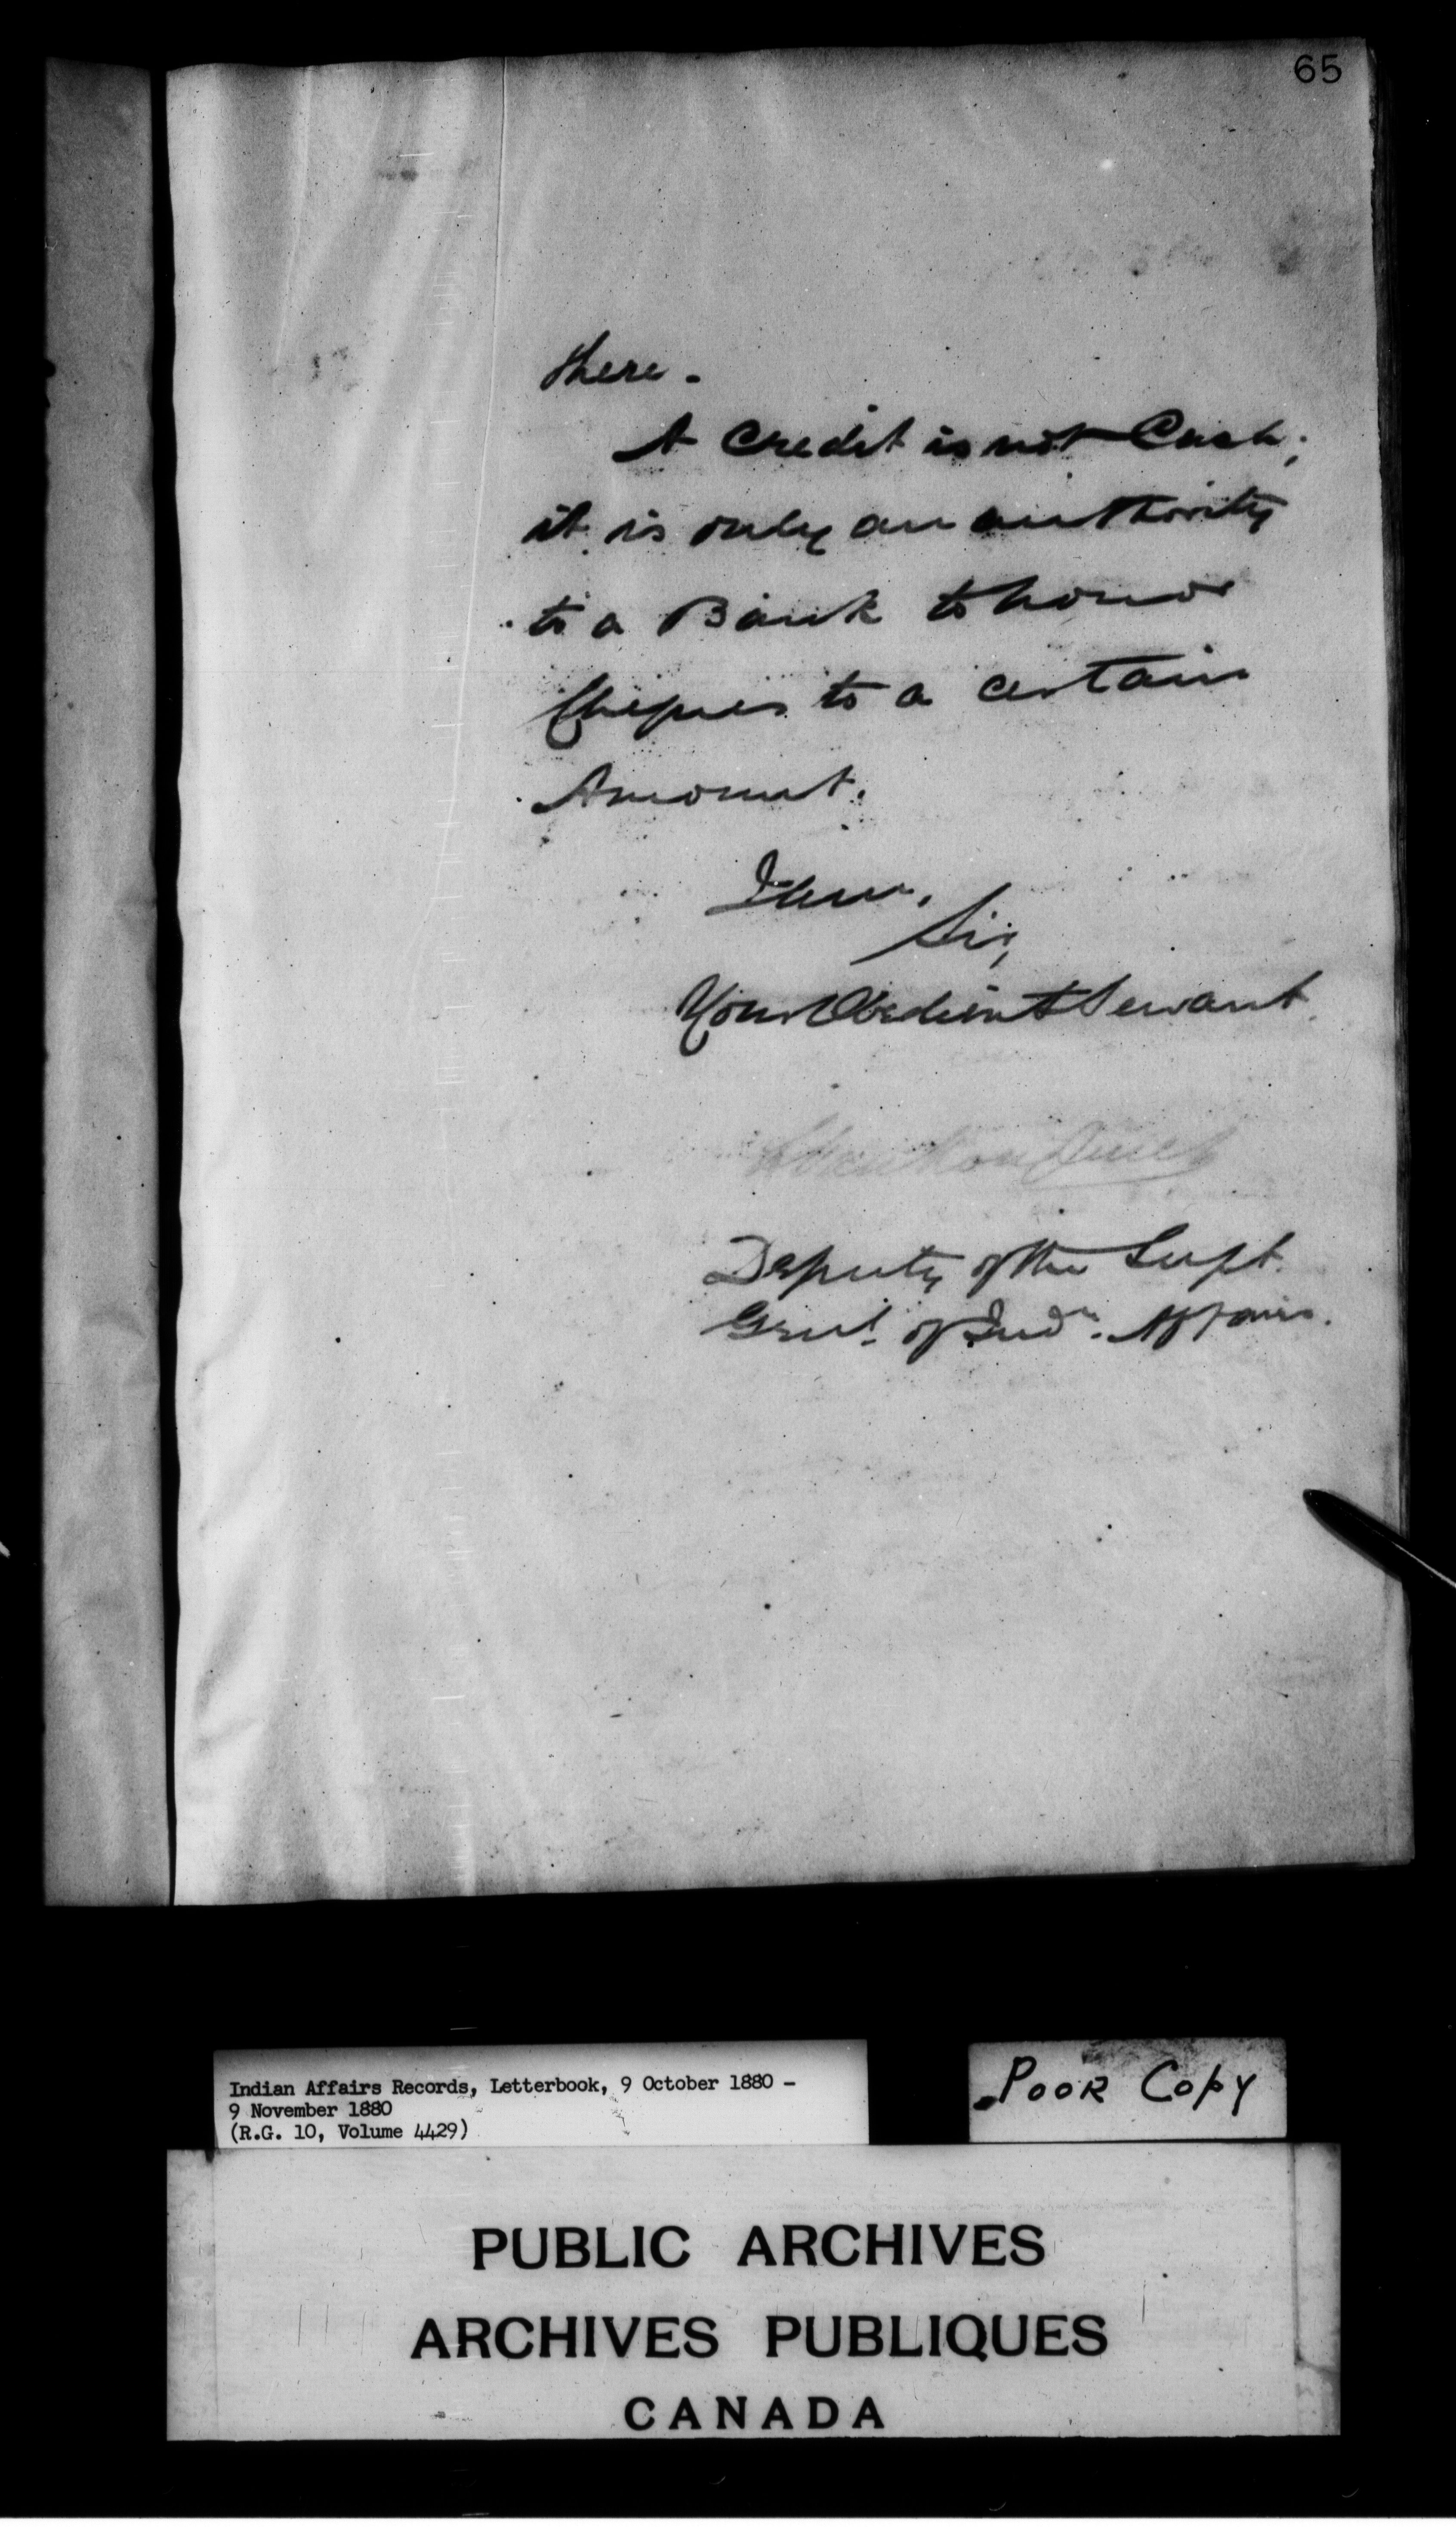 65
there.
A Credit is not Cash;
it is only an authority
to a Bank to honor
Cheques to a certain
Amount.
I have,
Sir,
Your Obedient Servant
Deputy of the Supt.
Genl. of Indn. Affairs.
Indian Affairs Records, Letterbook, 9 October 1880 -
9 November 1880
(R.G. 10, Volume 4429)
POOR COPY
PUBLIC ARCHIVES
ARCHIVES PUBLIQUES
CANADA